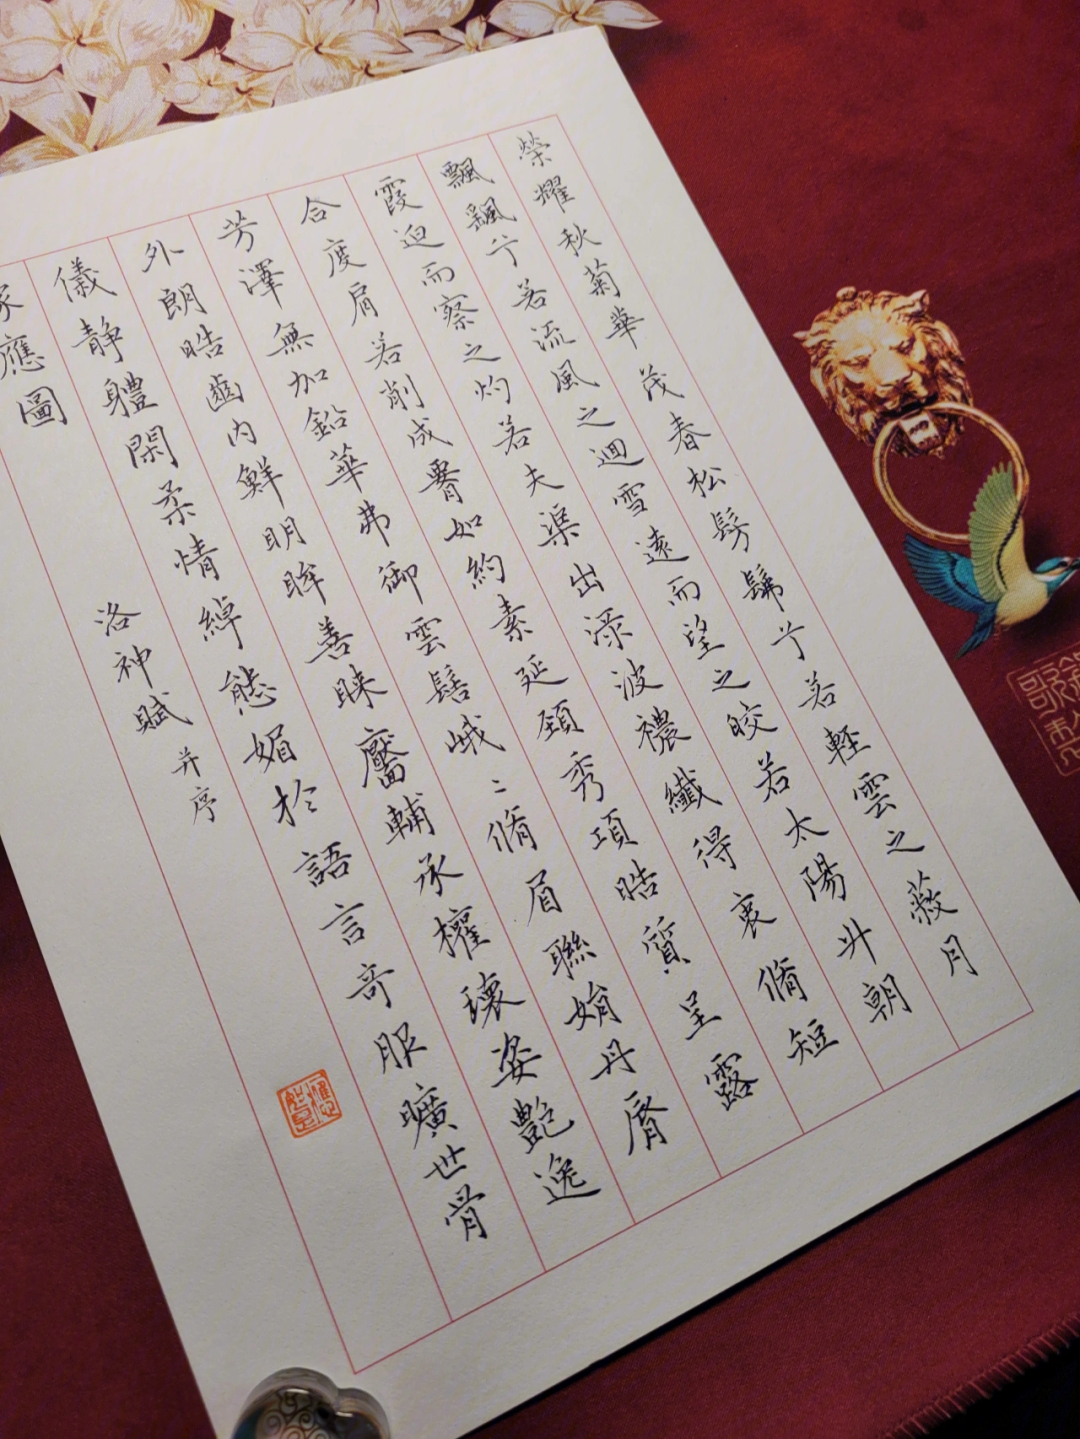 榮耀秋菊華茂春松髣髴兮若軽雲之蔽月
飄飄兮若流風之迴雪遠而望之皎若太陽升朝
霞迫而察之灼若夫渠出渌波襛纖得衷脩短
合度肩若削成𦝫如約素延頸秀項晧質呈露
芳澤無加鉛華弗御雲髻峨〻脩眉聯娟丹脣
外朗晧齒内鮮明眸善睞靨輔承權瓌姿艷逸
儀靜體閑柔情綽態媚於語言奇服曠世骨
應圖
洛神賦 并序